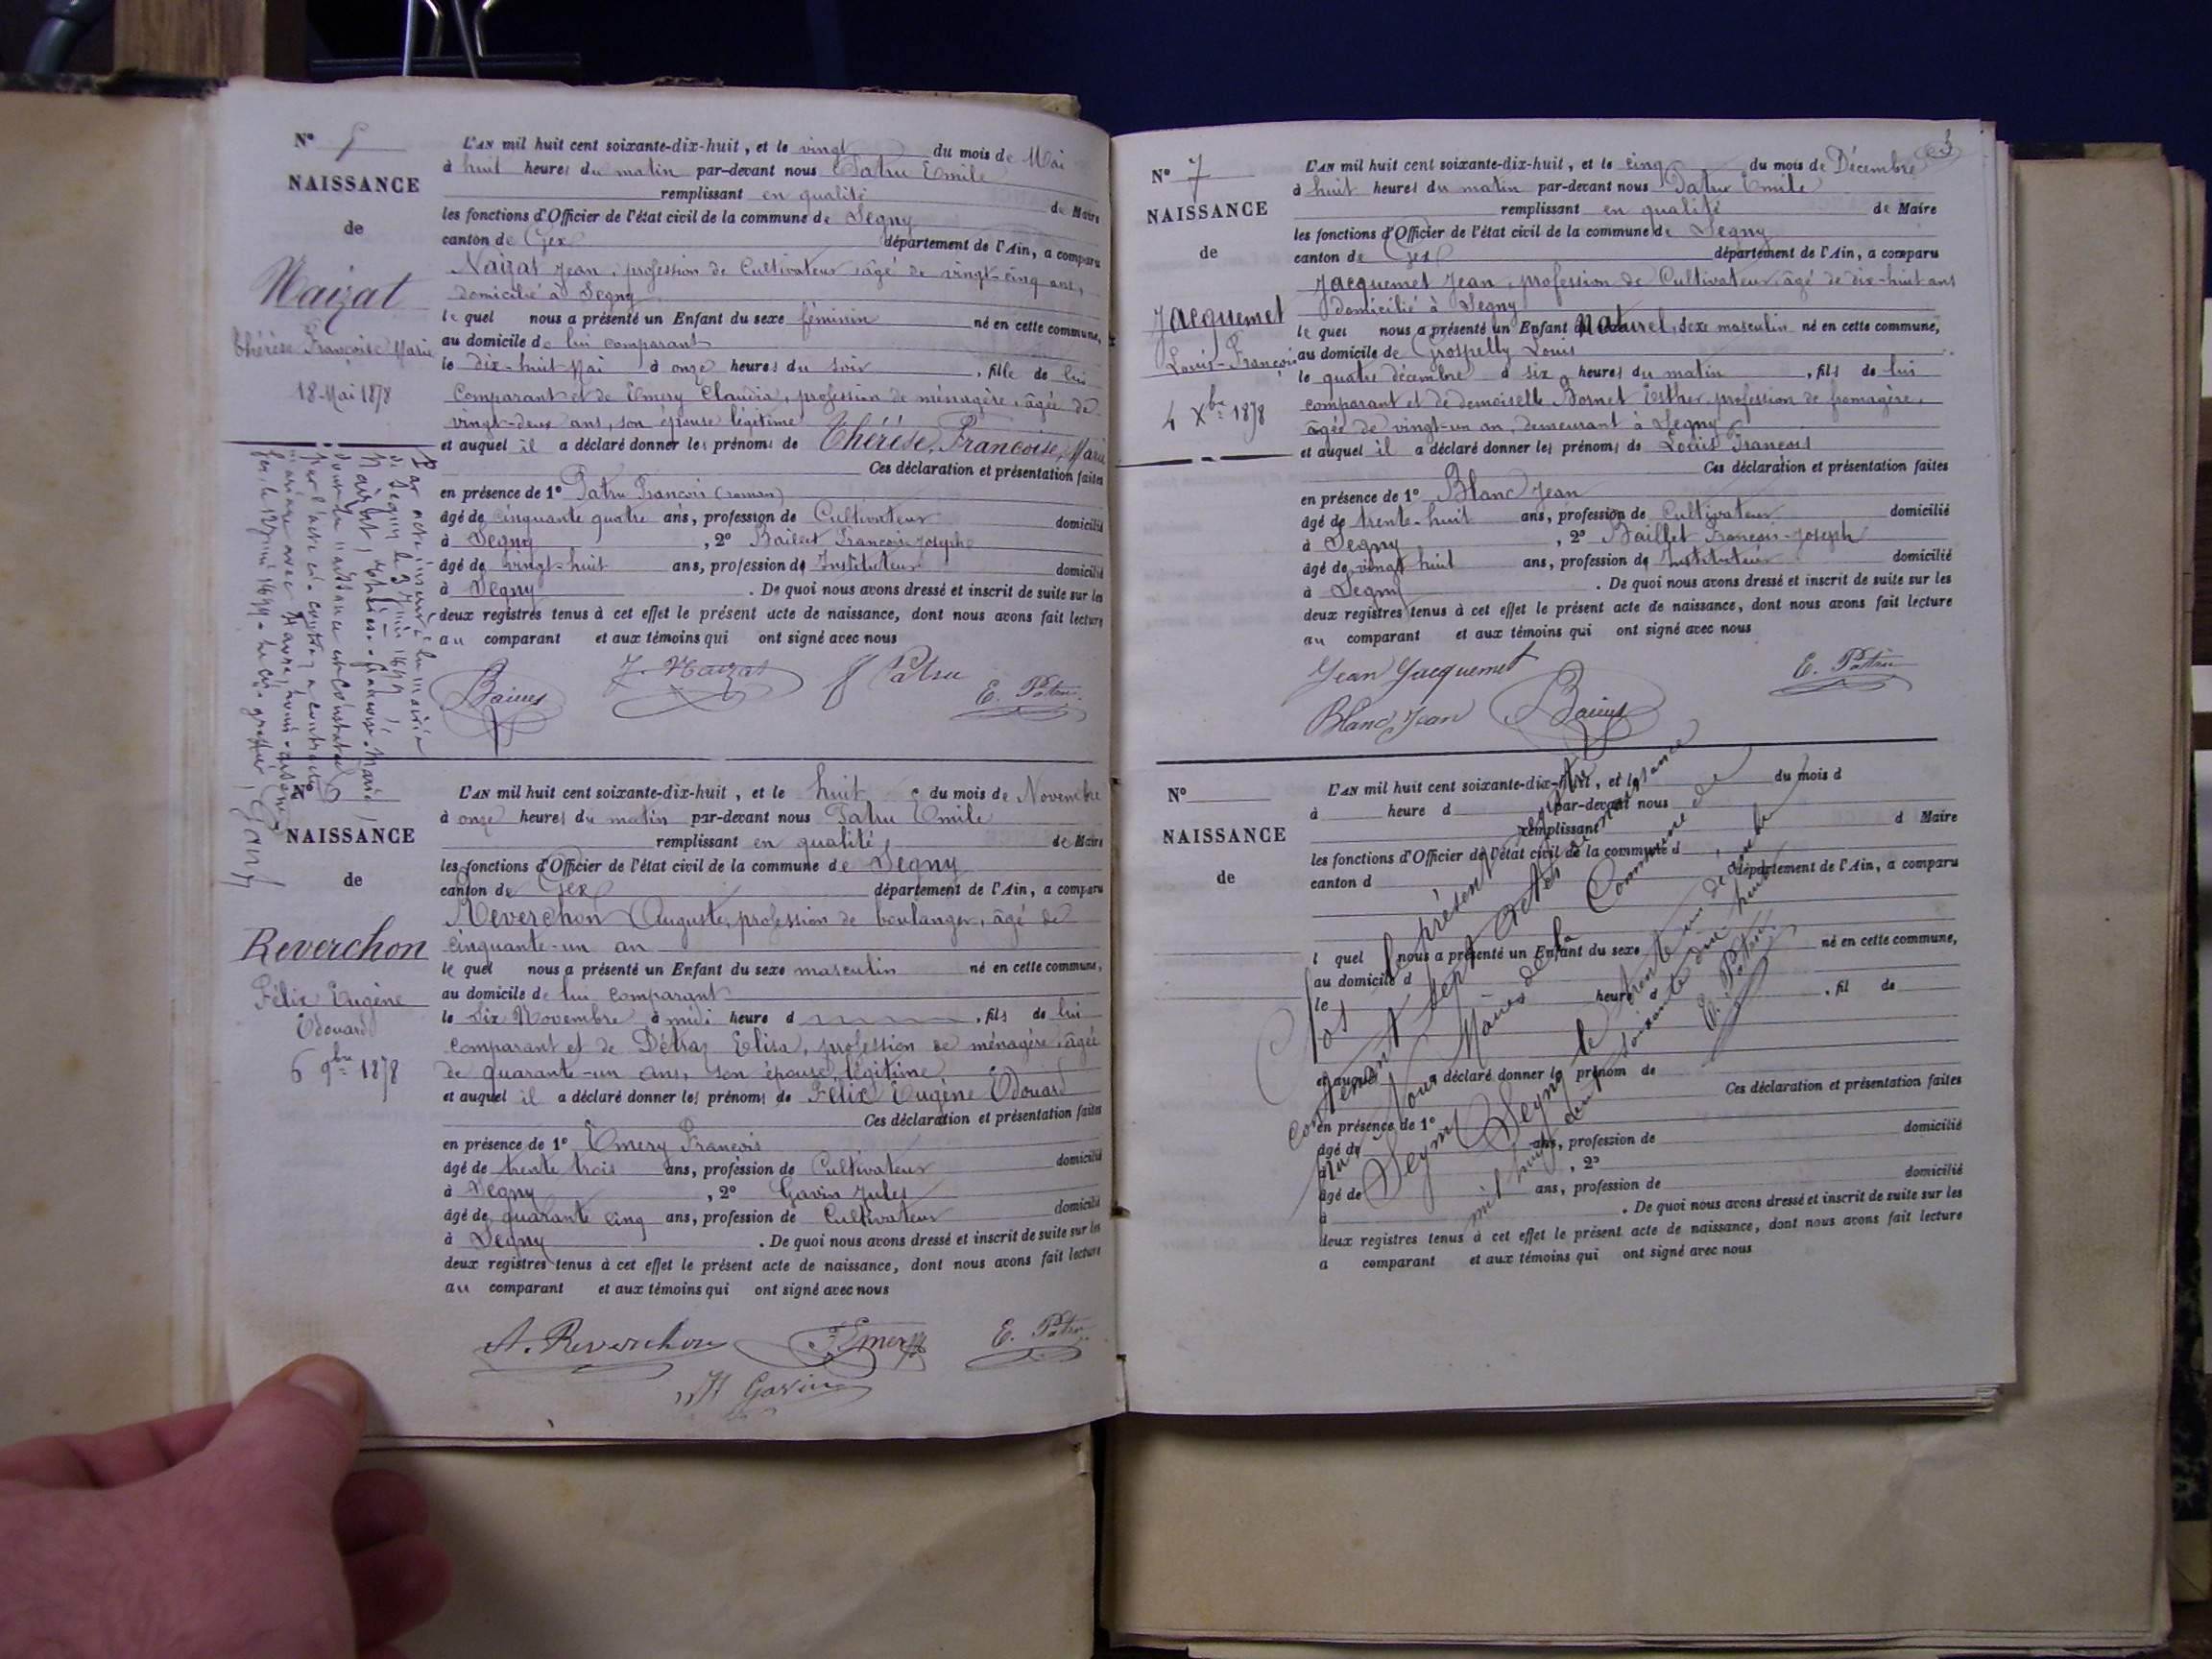 N° 5
NAISSANCE
de
Naizat
Thérèse Françoise Marie
18 Mai 1878
L'AN mil huit cent soixante-dix-huit, et le vingt du mois de Mai
à huit heures du matin par-devant nous Patru Emile
remplissant en qualité de Maire
les fonctions d'Officier de l'état civil de la commune de Segny
canton de Gex département de l'Ain, a comparu
Naizat Jean, profession de Cultivateur, âgé de vingt-cinq ans,
domicilié à Segny
le quel nous a présenté un Enfant du sexe féminin né en cette commune,
au domicile de lui comparant
le dix-huit Mai à onze heures du soir, fille de lui
comparant et de Emery Claudia, profession de ménagère, âgée de
vingt-deux ans, son épouse légitime
et auquel il a déclaré donner les prénoms de Thérèse, Françoise, Marie
Ces déclaration et présentation faites
en présence de 1° Patru François (roman)
âgé de cinquante quatre ans, profession de Cultivateur domicilié
à Segny, 2° Baillet François-Joseph
âgé de vingt-huit ans, profession de Instituteur domicilié
à Segny. De quoi nous avons dressé et inscrit de suite sur les
deux registres tenus à cet effet le présent acte de naissance, dont nous avons fait lecture
au comparant et aux témoins qui ont signé avec nous
J. Naizat Patru E. Patru
Par acte inscrit à la mairie
de Segny le 9 Juin 1899,
Naizat, Thérèse-Françoise-Marie,
dont la naissance est constatée
par l'acte ci-contre, a contracté
mariage avec
Gex, le 12 Juin 1899. Le
N° 6
NAISSANCE
de
Reverchon
Félix Eugène
Edouard
6 9bre 1878
L'AN mil huit cent soixante-dix-huit, et le huit du mois de Novembre
à onze heures du matin par-devant nous Patru Emile
remplissant en qualité de Maire
les fonctions d'Officier de l'état civil de la commune de Segny
canton de Gex département de l'Ain, a comparu
Reverchon Auguste, profession de boulanger, âgé de
cinquante-un an
le quel nous a présenté un Enfant du sexe masculin né en cette commune,
au domicile de lui comparant
le Six Novembre à midi heure d, fils de lui
comparant et de Détraz Elisa, profession de ménagère, âgée
de quarante-un ans, son épouse légitime
et auquel il a déclaré donner les prénoms de Félix Eugène Edouard
Ces déclaration et présentation faites
en présence de 1° Emery François
âgé de trente trois ans, profession de Cultivateur domicilié
à Segny, 2° Gavin Jules
âgé de quarante cinq ans, profession de Cultivateur domicilié
à Segny. De quoi nous avons dressé et inscrit de suite sur les
deux registres tenus à cet effet le présent acte de naissance, dont nous avons fait lecture
au comparant et aux témoins qui ont signé avec nous
A. Reverchon F. Emery E. Patru
Gavin
3
N° 7
NAISSANCE
de
Jacquemet
Louis-François
4 Xbre 1878
L'AN mil huit cent soixante-dix-huit, et le cinq du mois de Décembre
à huit heures du matin par-devant nous Patru Emile
remplissant en qualité de Maire
les fonctions d'Officier de l'état civil de la commune de Segny
canton de Gex département de l'Ain, a comparu
Jacquemet Jean, profession de Cultivateur, âgé de dix-huit ans
domicilié à Segny
le quel nous a présenté un Enfant naturel, sexe masculin né en cette commune,
au domicile de Grospelly Louis
le quatre décembre à six heures du matin, fils de lui
comparant et de demoiselle Bornet Esther, profession de fromagère,
âgée de vingt-un an, demeurant à Segny
et auquel il a déclaré donner les prénoms de Louis François
Ces déclaration et présentation faites
en présence de 1° Blanc Jean
âgé de trente-huit ans, profession de Cultivateur domicilié
à Segny, 2° Baillet François-Joseph
âgé de vingt huit ans, profession de Instituteur domicilié
à Segny. De quoi nous avons dressé et inscrit de suite sur les
deux registres tenus à cet effet le présent acte de naissance, dont nous avons fait lecture
au comparant et aux témoins qui ont signé avec nous
Jean Jacquemet E. Patru
Blanc, Jean
N°
NAISSANCE
de
L'AN mil huit cent soixante-dix-huit, et le du mois d
à heure d par-devant nous
remplissant d Maire
les fonctions d'Officier de l'état civil de la commune d
canton d département de l'Ain, a comparu
l quel nous a présenté un Enfant du sexe né en cette commune,
au domicile d
le heure d, fil de
et auquel a déclaré donner le prénom de
Ces déclaration et présentation faites
en présence de 1°
âgé de ans, profession de domicilié
à, 2°
âgé de ans, profession de domicilié
à. De quoi nous avons dressé et inscrit de suite sur les
deux registres tenus à cet effet le présent acte de naissance, dont nous avons fait lecture
a comparant et aux témoins qui ont signé avec nous
Clos le présent registre
contenant sept actes de naissance
par Nous Maire de la Commune de
Segny. Segny le trente un décembre
mil huit cent soixante dix huit
E. Patru